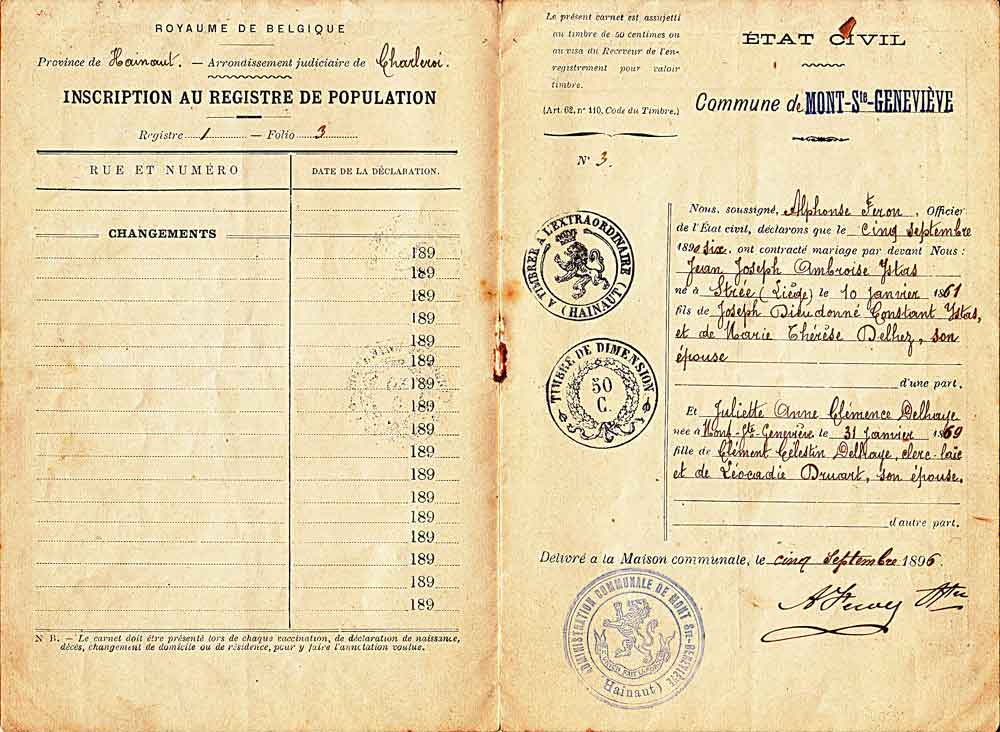 ROYAUME DE BELGIQUE
Province de Hainaut. — Arrondissement judiciaire de Charleroi.
INSCRIPTION AU REGISTRE DE POPULATION
Registre 1 — Folio 3
RUE ET NUMÉRO
DATE DE LA DÉCLARATION.
CHANGEMENTS
189
189
189
189
189
189
189
189
189
189
189
189
189
189
189
189
N B. — Le carnet doit être présenté lors de chaque vaccination, de déclaration de naissance,
décès, changement de domicile ou de résidence, pour y faire l'annotation voulue.
Le présent carnet est assujetti
au timbre de 50 centimes ou
au visa du Receveur de l'en-
registrement pour valoir
timbre.
(Art. 62, n° 110, Code du Timbre.)
N° 3.
A TIMBRER A L'EXTRAORDINAIRE
(HAINAUT)
TIMBRE DE DIMENSION
50
C.
ÉTAT CIVIL
Commune de MONT-Ste-GENEVIÈVE
Nous, soussigné, Alphonse Feron, Officier
de l'État civil, déclarons que le cinq septembre
1890 six, ont contracté mariage par devant Nous :
Jean Joseph Ambroise Ystas
né à Strée (Liège) le 10 janvier 1861
fils de Joseph Dieudonné Constant Ystas,
et de Marie Thérèse Delhez, son
épouse
d'une part.
Et Juliette Anne Clémence Delhaye
née à Mont-Ste Geneviève le 31 janvier 1869
fille de Clément Célestin Delhaye, clerc-laïc
et de Léocadie Druart, son épouse.
d'autre part.
Délivré a la Maison communale, le cinq septembre 1896.
ADMINISTRATION COMMUNALE DE MONT STE-GENEVIÈVE
Hainaut)